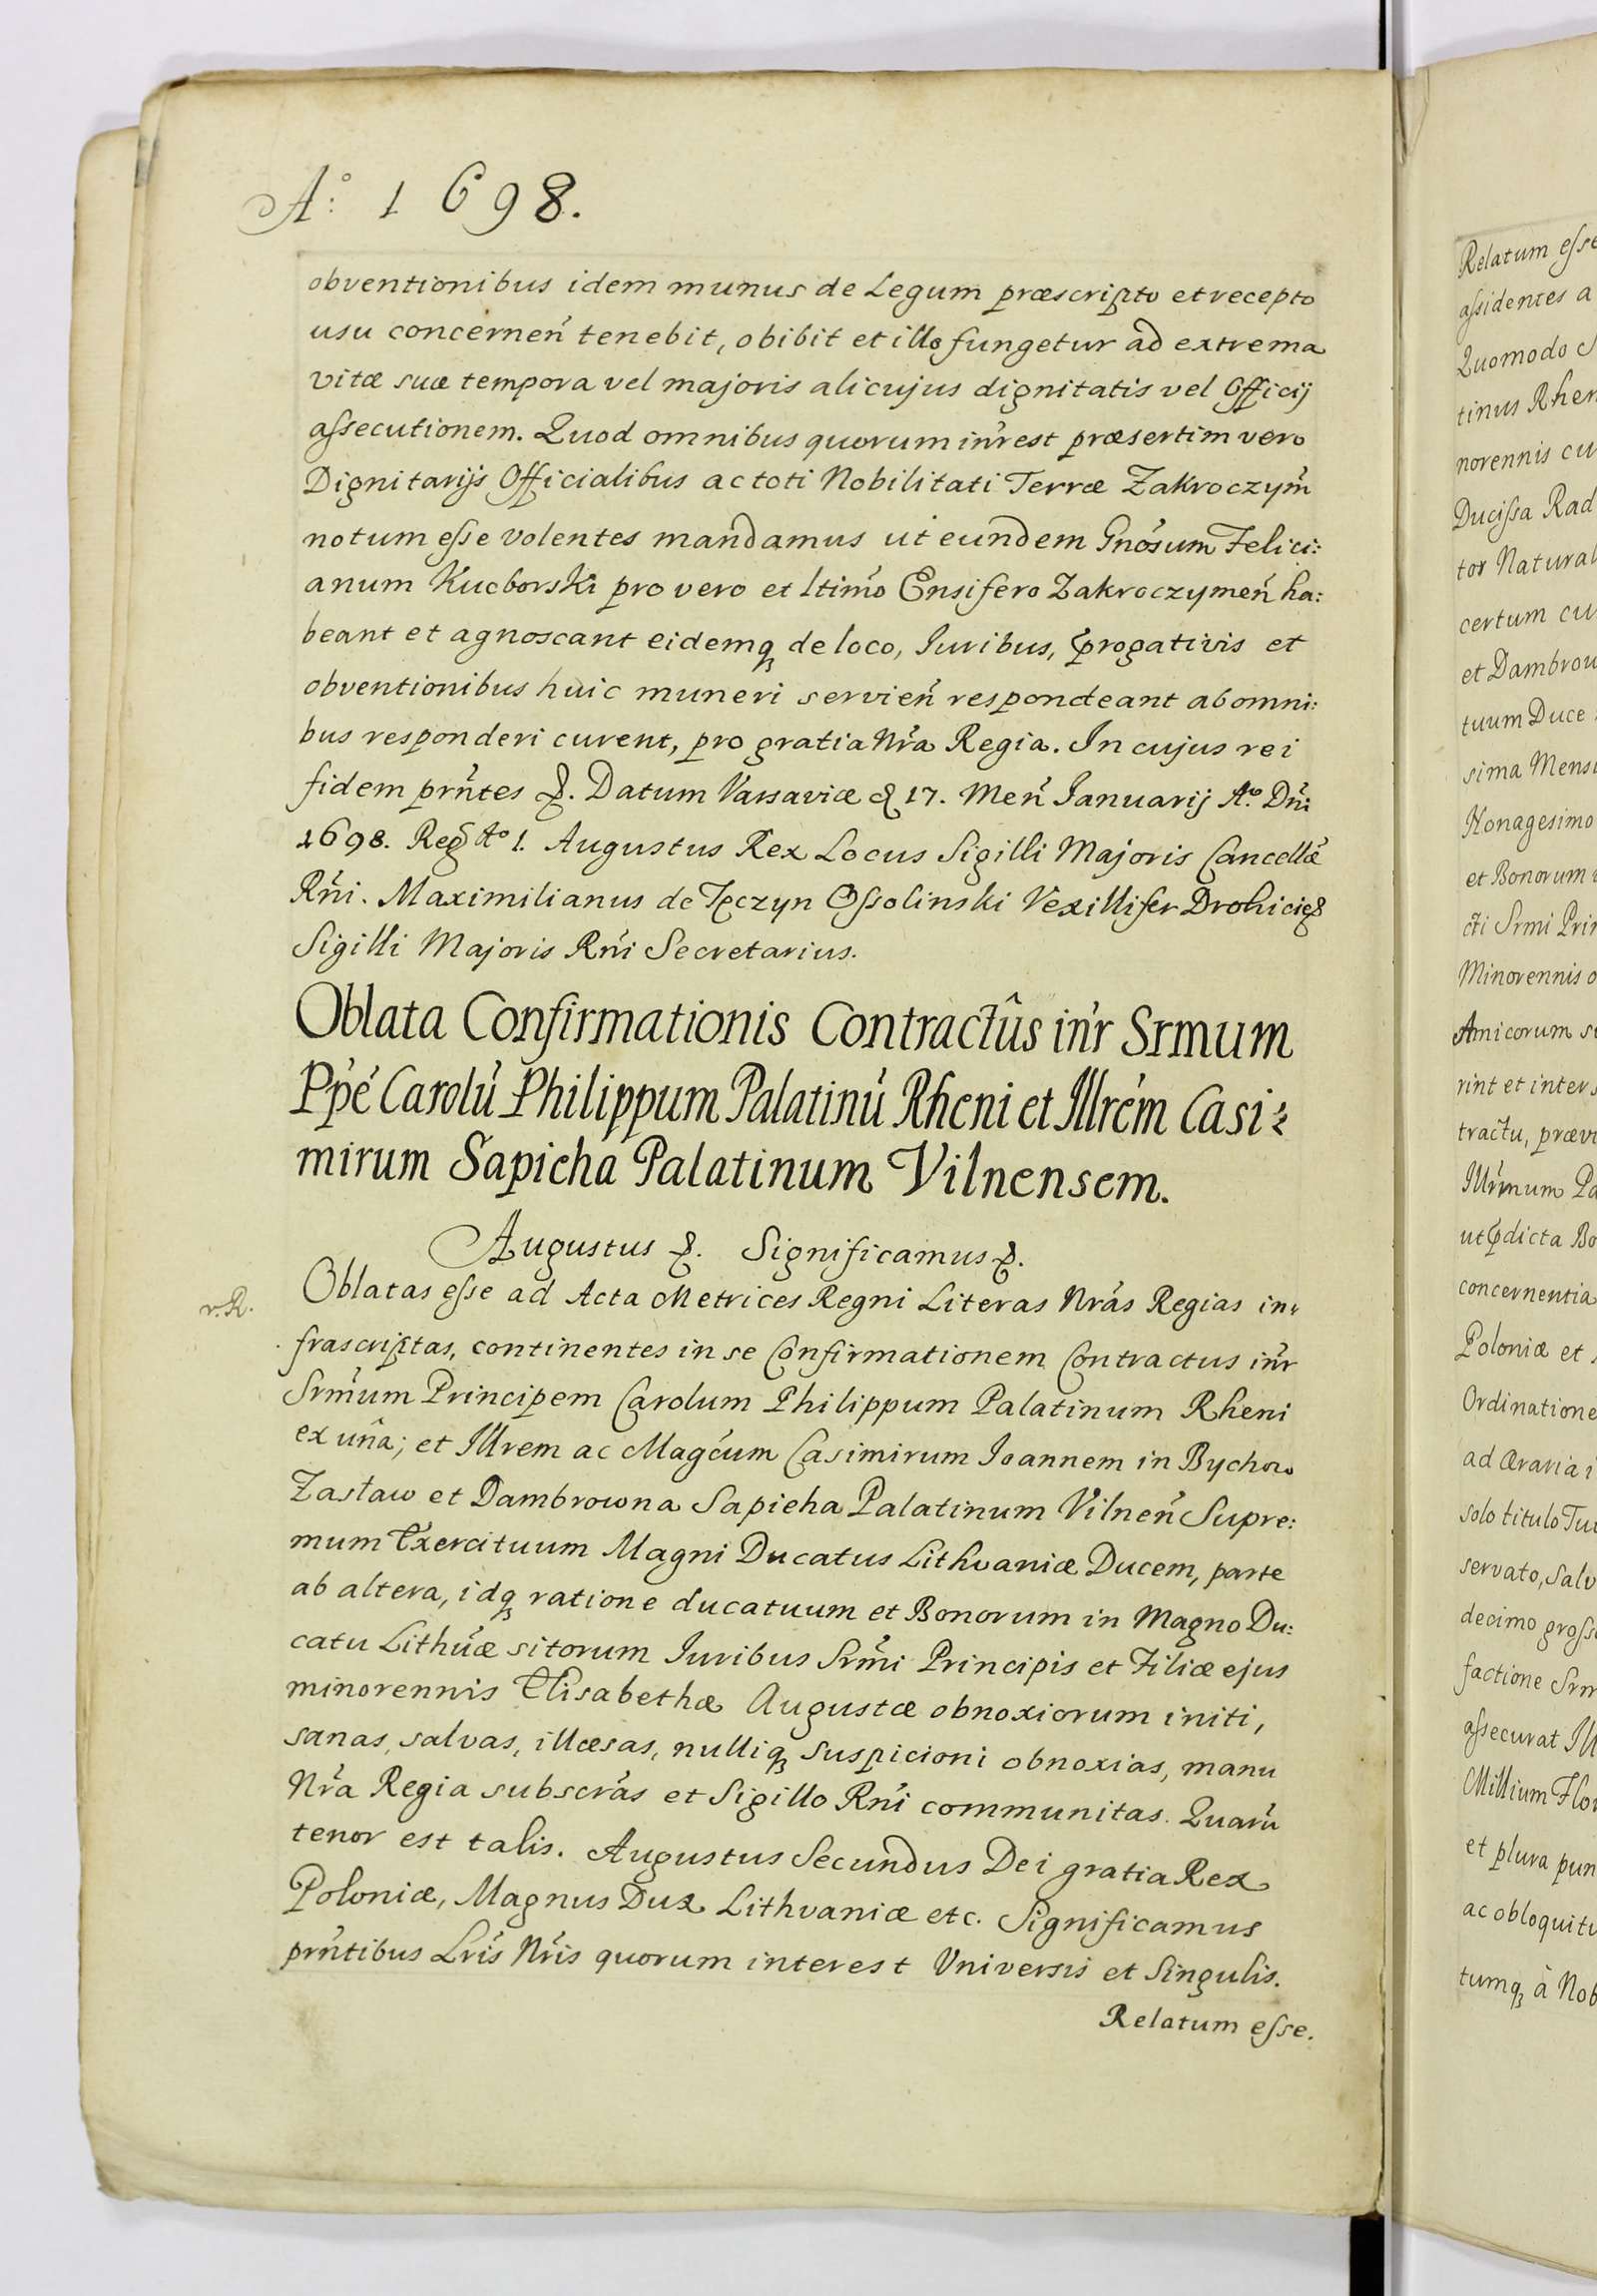 A:° 1698.
obventionibus idem munus de Legum præscripto et recepto
usu concerneñ tenebit, obibit et illo fungetur ad extrema
vitæ suæ tempora vel majoris alicujus dignitatis vel Officij
aſsecutionem. Quod omnibus quorum inr̃est præsertim vero
Dignitarijs Officialibus ac toti Nobilitati Terræ Zakroczym̃
notum eſse volentes mandamus ut eundem Gnõsum Felici:
anum Kucborski pro vero et ltim̃o Ensifero Zakroczymeñ ha:
beant et agnoscant eidemq̃ de loco, Iuribus, p̃rogativis et
obventionibus huic muneri servieñ respondeant ab omni:
bus responderi curent, pro gratia Nr̃a Regia. In cujus rei
fidem prñtes &. Datum Varsaviæ d 17. Meñ Ianuarij A.° Dñi
1698. Reg̃ A° 1. Augustus Rex Locus Sigilli Majoris Cancellæ̃
Rñi. Maximilianus de Tęczyn Oſsolinski Vexillifer Drohicieñ
Sigilli Majoris Rñi Secretarius.
Oblata Confirmationis Contractûs inr̃ Srmum
Ppẽ Carolũ Philippum Palatinũ Rheni et Illrem̃ Casi:
mirum Sapieha Palatinum Vilnensem.
Augustus &. Significamus &.
v. R.
Oblatas eſse ad Acta Metrices Regni Literas Nrãs Regias in:
frascriptas, continentes in se Confirmationem Contractus inr̃
Srm̃um Principem Carolum Philippum Palatinum Rheni
ex unâ; et Illrem ac Magc̃um Casimirum Ioannem in Bychow
Zasław et Dambrowna Sapieha Palatinum Vilneñ Supre:
mum Exercituum Magni Ducatus Lithvaniæ Ducem, parte
ab altera, idq̃ ratione ducatuum et Bonorum in Magno Du:
catu Lithũæ sitorum Iuribus Srm̃i Principis et Filiæ ejus
minorennis Elisabethæ Augustæ obnoxiorum initi,
sanas, salvas, illæsas, nulliq̃ suspicioni obnoxias, manu
Nr̃a Regia subscrãs et Sigillo Rñi communitas. Quarũ
tenor est talis. Augustus Secundus Dei gratia Rex
Poloniæ, Magnus Dux Lithvaniæ etc. Significamus
prñtibus Lr̃is Nr̃is quorum interest Vniversis et Singulis.
Relatum eſse.
Relatum eſse
aſsidentes a
Quomodo S
tinus Rhen
norennis cu
Duciſsa Rad
tor Natural
certum cu
et Dambrow
tuum Duce
sima Mensi
Nonagesimo
et Bonorum
cti Srmi Prin
Minorennis o
Amicorum su
rint et inter s
tractu, prævi
Illr̃mum Pa
ut p̃dicta Bo
concernentia
Poloniæ et
Ordinatione
ad Æraria i
solo titulo Tu
servato, Salv
decimo groſs
factione Srm
aſsecurat Ill
Millium Flor
et plura pun
ac obloquitu
tumq̃ à Nob